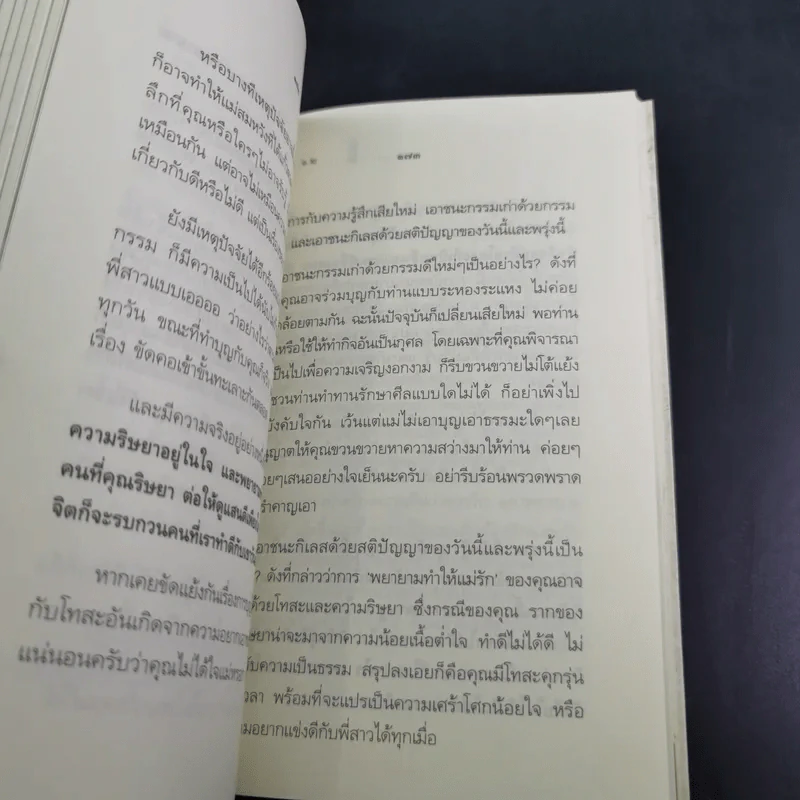 หรือบางทีเหตุปัจจัย
ก็อาจทำให้แม่สมหวังที่ได้
ลึกที่คุณหรือใครๆไม่อาจ
เหมือนกัน แต่อาจไม่เหมือน
เกี่ยวกับดีหรือไม่ดี แต่เป็น
ยังมีเหตุปัจจัยได้อีก
กรรม ก็มีความเป็นไปได้
พี่สาวแบบเออออ ว่าอย่างไร
ทุกวัน ขณะที่ทำบุญกับคุณ
เรื่อง ขัดคอเข้าขั้นทะเลาะกัน
และมีความจริงอยู่อย่าง
ความริษยาอยู่ในใจ และพยายาม
คนที่คุณริษยา ต่อให้ดูแสนดี
จิตก็จะรบกวนคนที่เราทำดีกับ
หากเคยขัดแย้งกันเรื่อง
กับโทสะอันเกิดจากความอยาก
แน่นอนครับว่าคุณไม่ได้ใจแม่
๖๒ ๒๗๓
การกับความรู้สึกเสียใหม่ เอาชนะกรรมเก่าด้วยกรรม
และเอาชนะกิเลสด้วยสติปัญญาของวันนี้และพรุ่งนี้
เอาชนะกรรมเก่าด้วยกรรมดีใหม่ๆเป็นอย่างไร? ดังที่
คุณอาจร่วมบุญกับท่านแบบระหองระแหง ไม่ค่อย
คล้อยตามกัน ฉะนั้นปัจจุบันก็เปลี่ยนเสียใหม่ พอท่าน
เหรือใช้ให้ทำกิจอันเป็นกุศล โดยเฉพาะที่คุณพิจารณา
เป็นไปเพื่อความเจริญงอกงาม ก็รีบขวนขวายไม่โต้แย้ง
ชวนท่านทำทานรักษาศีลแบบใดไม่ได้ ก็อย่าเพิ่งไป
บังคับใจกัน เว้นแต่แม่ไม่เอาบุญเอาธรรมะใดๆเลย
ญาตให้คุณขวนขวายหาความสว่างมาให้ท่าน ค่อยๆ
ยๆเสนออย่างใจเย็นนะครับ อย่ารีบร้อนพรวดพราด
รำคาญเอา
เอาชนะกิเลสด้วยสติปัญญาของวันนี้และพรุ่งนี้เป็น
? ดังที่กล่าวว่าการ 'พยายามทำให้แม่รัก' ของคุณอาจ
ด้วยโทสะและความริษยา ซึ่งกรณีของคุณ รากของ
ษยาน่าจะมาจากความน้อยเนื้อต่ำใจ ทำดีไม่ได้ดี ไม่
ับความเป็นธรรม สรุปลงเอยก็คือคุณมีโทสะคุกรุ่น
วลา พร้อมที่จะแปรเป็นความเศร้าโศกน้อยใจ หรือ
มอยากแข่งดีกับพี่สาวได้ทุกเมื่อ